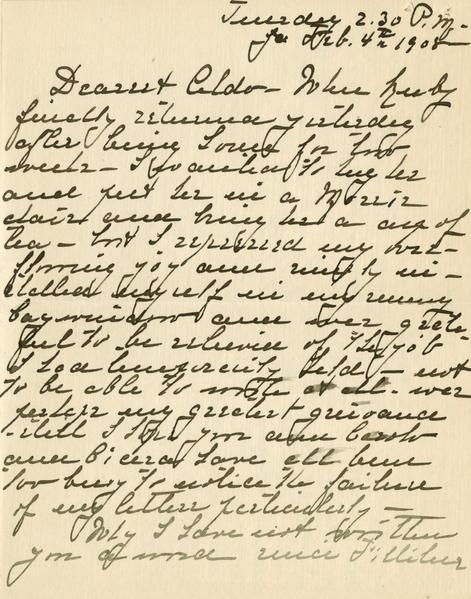 Tuesday 2.30 P.M.
Feb. 4th 1908
Dearest Aldo - When Ruby
finally returned yesterday
after being gone for two
weeks - I wanted to hug her
and put her in a Morris
chair and bring her a cup of
tea - but I repressed my over-
flowing joy and simply in-
stalled myself in my sunny
bay window and was grate-
ful to be relieved of the job
I had temporarily held - not
to be able to write at all - was
perhaps my greatest grievance
- still I hope you and Carlo
and have all been
too busy to notice the failure
of my letters particularly -
Why I have not written
you a word since